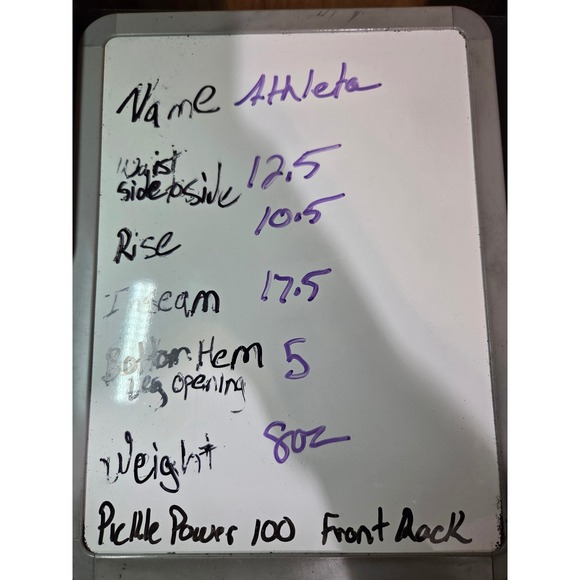 Name Athleta
Waist
side to side 12.5
Rise 10.5
Inseam 17.5
Bottom Hem 5
Leg opening
Weight 8oz
Pickle Power 100 Front Rack